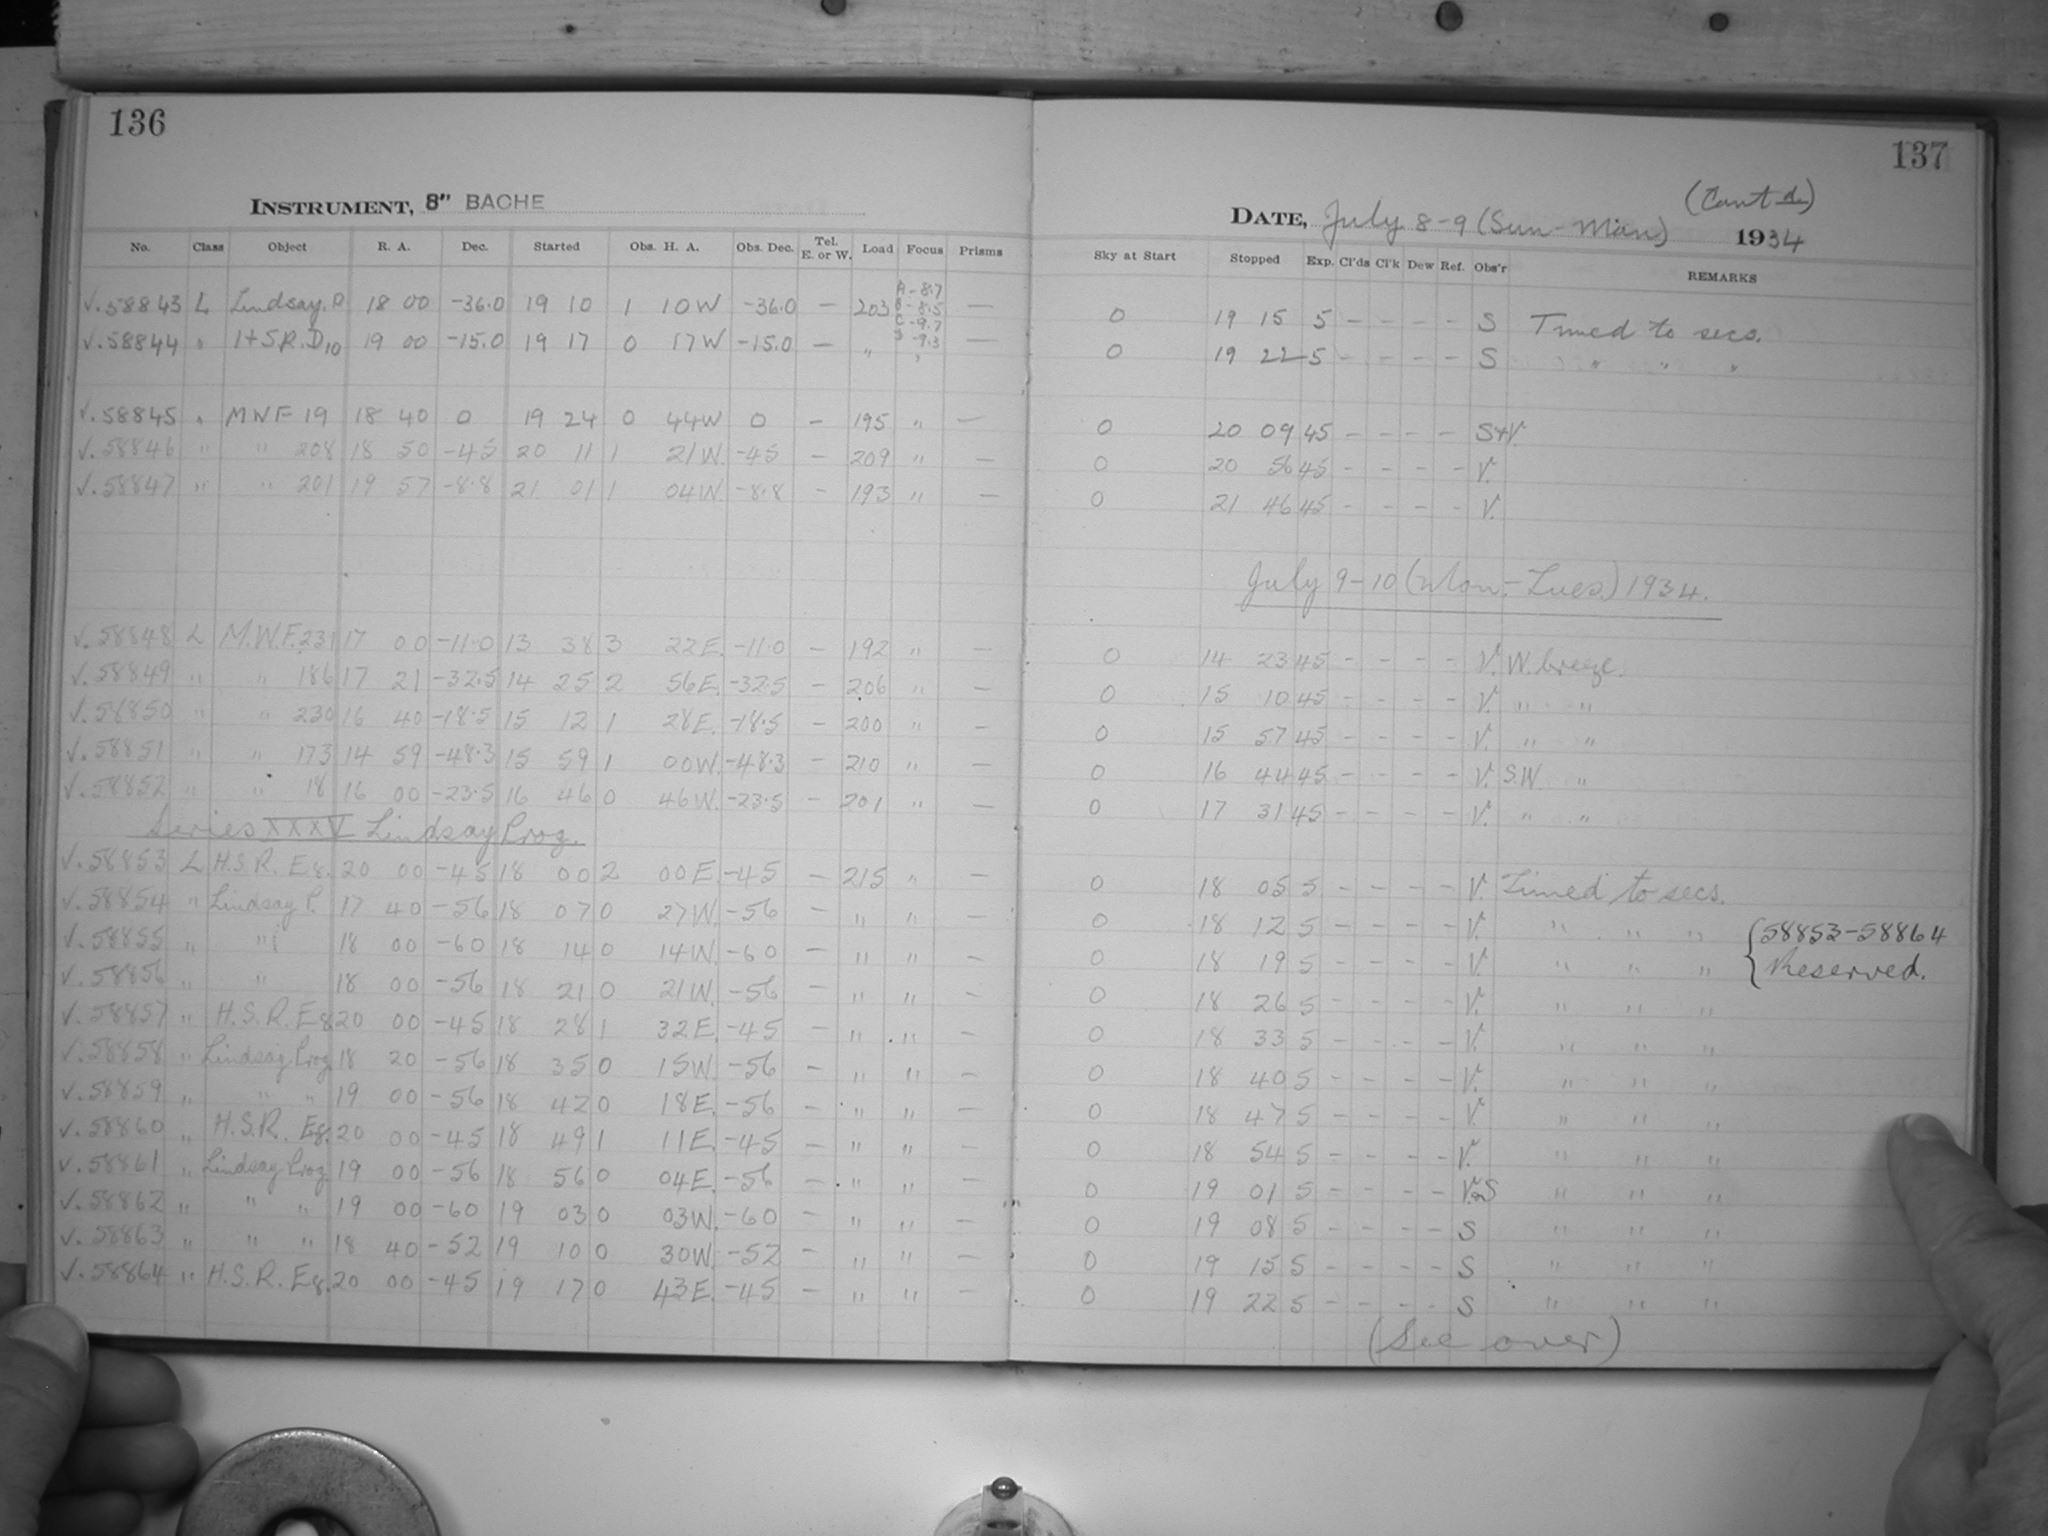 136
INSTRUMENT, 8" BACHE
No. Class Object R. A. Dec. Started Obs. H. A. Obs. Dec. Tel. E. or W. Load Focus Prisms
√.58843 L Lindsay. P 18 00 -36.0 19 10 1 10W -36.0 — 203 A-8.7 B-8.5 C-9.7 -9.3 —
√.58844 " H.S.R. D10 19 00 -15.0 19 17 0 17W -15.0 — " " —
√.58845 " MWF 19 18 40 0 19 24 0 44W 0 - 195 " —
√.58846 " " 208 18 50 -45 20 11 1 21W. -45 - 209 " —
√.58847 " " 201 19 57 -8.8 21 01 1 04W -8.8 - 193 " —
√.58848 L M.W.F. 231 17 00 -11.0 13 38 3 22E. -11.0 - 192 " —
√.58849 " " 186 17 21 -32.5 14 25 2 56E. -32.5 - 206 " —
√.58850 " " 230 16 40 -18.5 15 12 1 28E. -18.5 - 200 " —
√.58851 " " 173 14 59 -48.3 15 59 1 00W. -48.3 - 210 " —
√.58852 " " 18 16 00 -23.5 16 46 0 46W. -23.5 - 201 " —
Series XXXV Lindsay Prog.
√.58853 L H.S.R. E8. 20 00 -45 18 00 2 00E. -45 - 215 " —
√.58854 " Lindsay P. 17 40 -56 18 07 0 27W. -56 - " " —
√.58855 " " 18 00 -60 18 14 0 14W. -60 - " " —
√.58856 " " 18 00 -56 18 21 0 21W. -56 - " " —
√.58857 " H.S.R. E8 20 00 -45 18 28 1 32E. -45 - " " —
√.58858 " Lindsay Prog 18 20 -56 18 35 0 15W. -56 - " " —
√.58859 " " " 19 00 -56 18 42 0 18E. -56 - " " —
√.58860 " H.S.R. E8. 20 00 -45 18 49 1 11E. -45 - " " —
√.58861 " Lindsay Prog 19 00 -56 18 56 0 04E. -56 - " " —
√.58862 " " " 19 00 -60 19 03 0 03W. -60 - " " —
√.58863 " " " 18 40 -52 19 10 0 30W. -52 - " " —
√.58864 " H.S.R. E8. 20 00 -45 19 17 0 43E. -45 - " " —
137
DATE, July 8-9 (Sun-Mon) (Cont'd.) 1934
Sky at Start Stopped Exp. Cl'ds Cl'k Dew Ref. Obs'r REMARKS
0 19 15 5 - - - - S Timed to secs.
0 19 22 5 - - - - S " " "
0 20 09 45 - - - - S+V.
0 20 56 45 - - - - V.
0 21 46 45 - - - - V.
July 9-10 (Mon.-Tues.) 1934.
0 14 23 45 - - - - V. W. breeze.
0 15 10 45 - - - - V. " "
0 15 57 45 - - - - V. " "
0 16 44 45 - - - - V. S.W. "
0 17 31 45 - - - - V. " "
0 18 05 5 - - - - V. Timed to secs.
0 18 12 5 - - - - V. " " " {58853-58864
0 18 19 5 - - - - V. " " " Reserved.
0 18 26 5 - - - - V. " " "
0 18 33 5 - - - - V. " " "
0 18 40 5 - - - - V. " " "
0 18 47 5 - - - - V. " " "
0 18 54 5 - - - - V. " " "
0 19 01 5 - - - - V.&S " " "
0 19 08 5 - - - - S " " "
0 19 15 5 - - - - S " " "
0 19 22 5 - - - - S " " "
(See over)